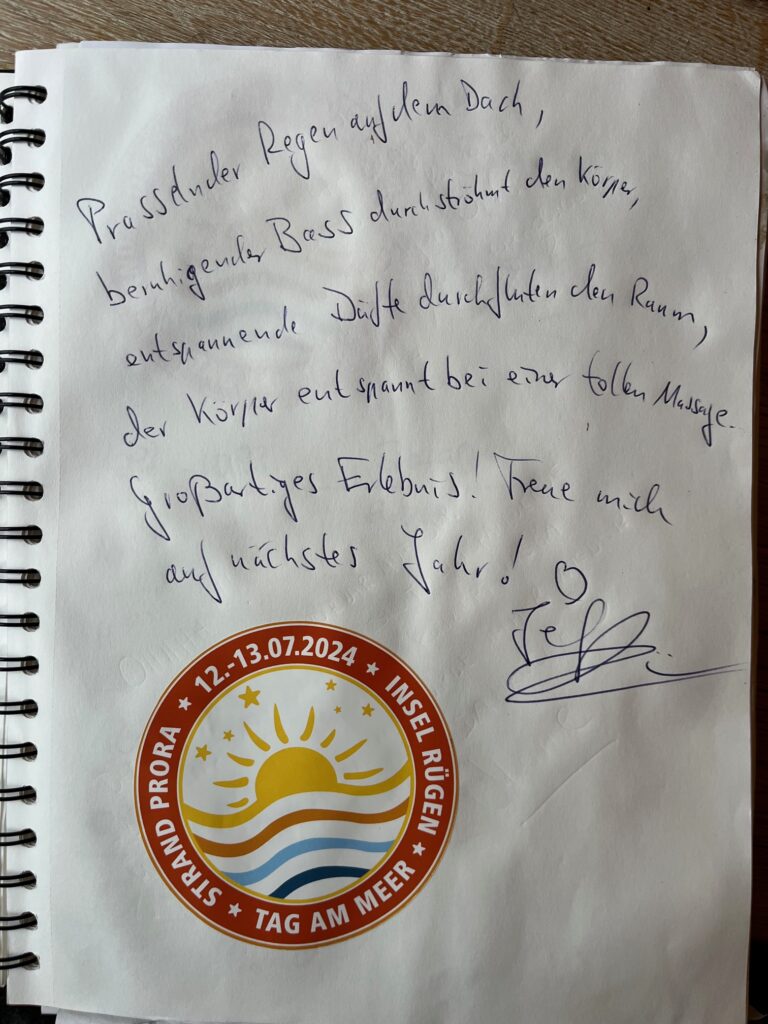 Prasselnder Regen auf dem Dach,
beruhigender Bass durchströhmt den Körper,
entspannende Düfte durchfluten den Raum,
der Körper entspannt bei einer tollen Massage.
Großartiges Erlebnis! Freue mich
auf nächstes Jahr!
STRAND PRORA ★ 12.-13.07.2024 ★ INSEL RÜGEN ★ TAG AM MEER ★